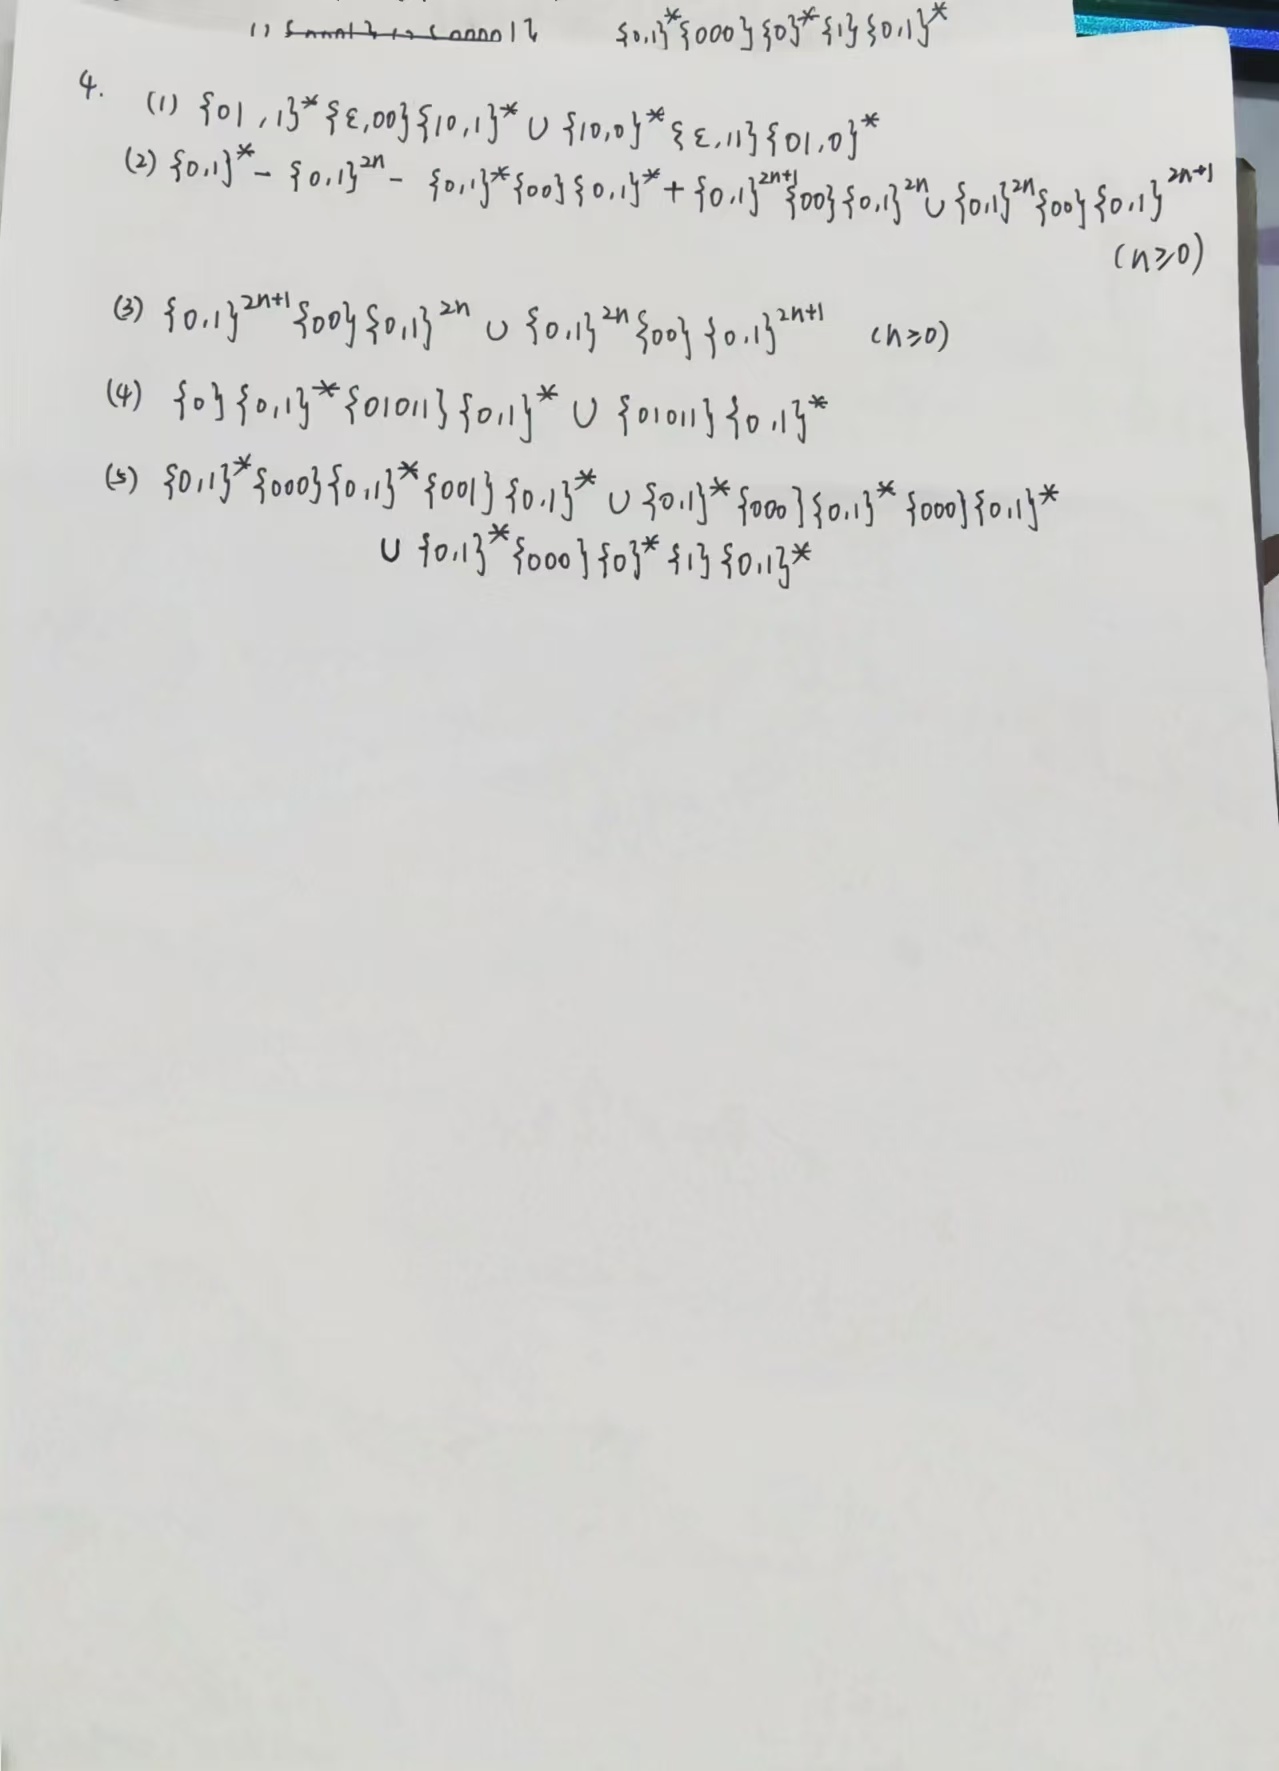 {0,1}*{000}{0}*{1}{0,1}*
4.
(1) {01,1}*{ε,00}{10,1}* ∪ {10,0}*{ε,11}{01,0}*
(2) {0,1}* - {0,1}²ⁿ - {0,1}*{00}{0,1}* + {0,1}²ⁿ⁺¹{00}{0,1}²ⁿ ∪ {0,1}²ⁿ{00}{0,1}²ⁿ⁺¹
(n≥0)
(3) {0,1}²ⁿ⁺¹{00}{0,1}²ⁿ ∪ {0,1}²ⁿ{00}{0,1}²ⁿ⁺¹ (n≥0)
(4) {0}{0,1}*{01011}{0,1}* ∪ {01011}{0,1}*
(5) {0,1}*{000}{0,1}*{001}{0,1}* ∪ {0,1}*{000}{0,1}*{000}{0,1}*
∪ {0,1}*{000}{0}*{1}{0,1}*